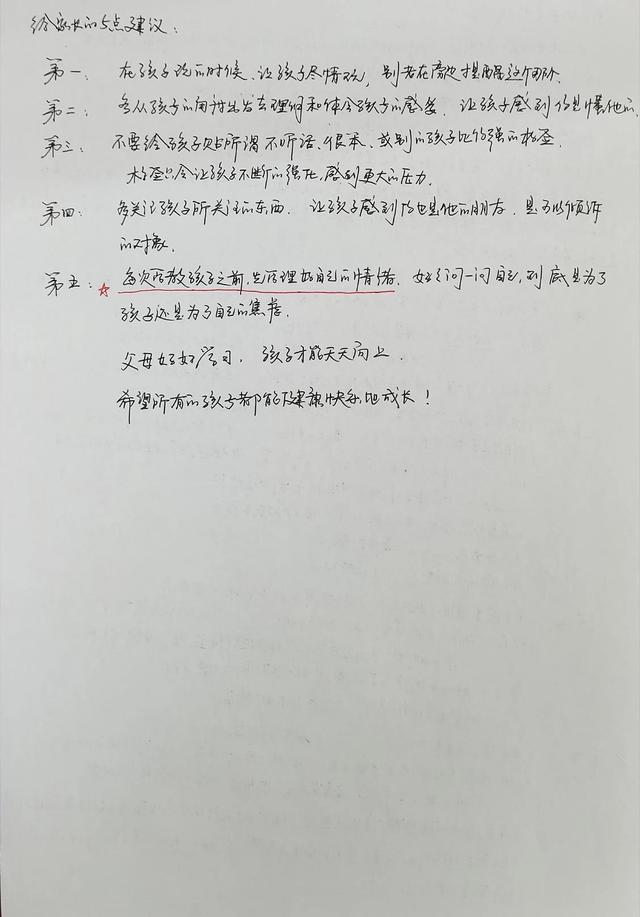 给家长的5点建议:
第一: 在孩子玩的时候、让孩子尽情玩, 别老在旁边提醒这个那个.
第二: 多从孩子的角度出发去理解和体会孩子的感受. 让孩子感到你是懂他的.
第三: 不要给孩子贴所谓不听话、很笨、或别的孩子比你强的标签.
标签只会让孩子不断的强化, 感到更大的压力.
第四: 多关注孩子所关注的东西. 让孩子感到你也是他的朋友. 是可以倾诉
的对象.
第五: ☆ 每次管教孩子之前, 先管理好自己的情绪. 好好问一问自己, 到底是为了
孩子还是为了自己的焦虑.
父母好好学习, 孩子才能天天向上.
希望所有的孩子都能健康快乐地成长!